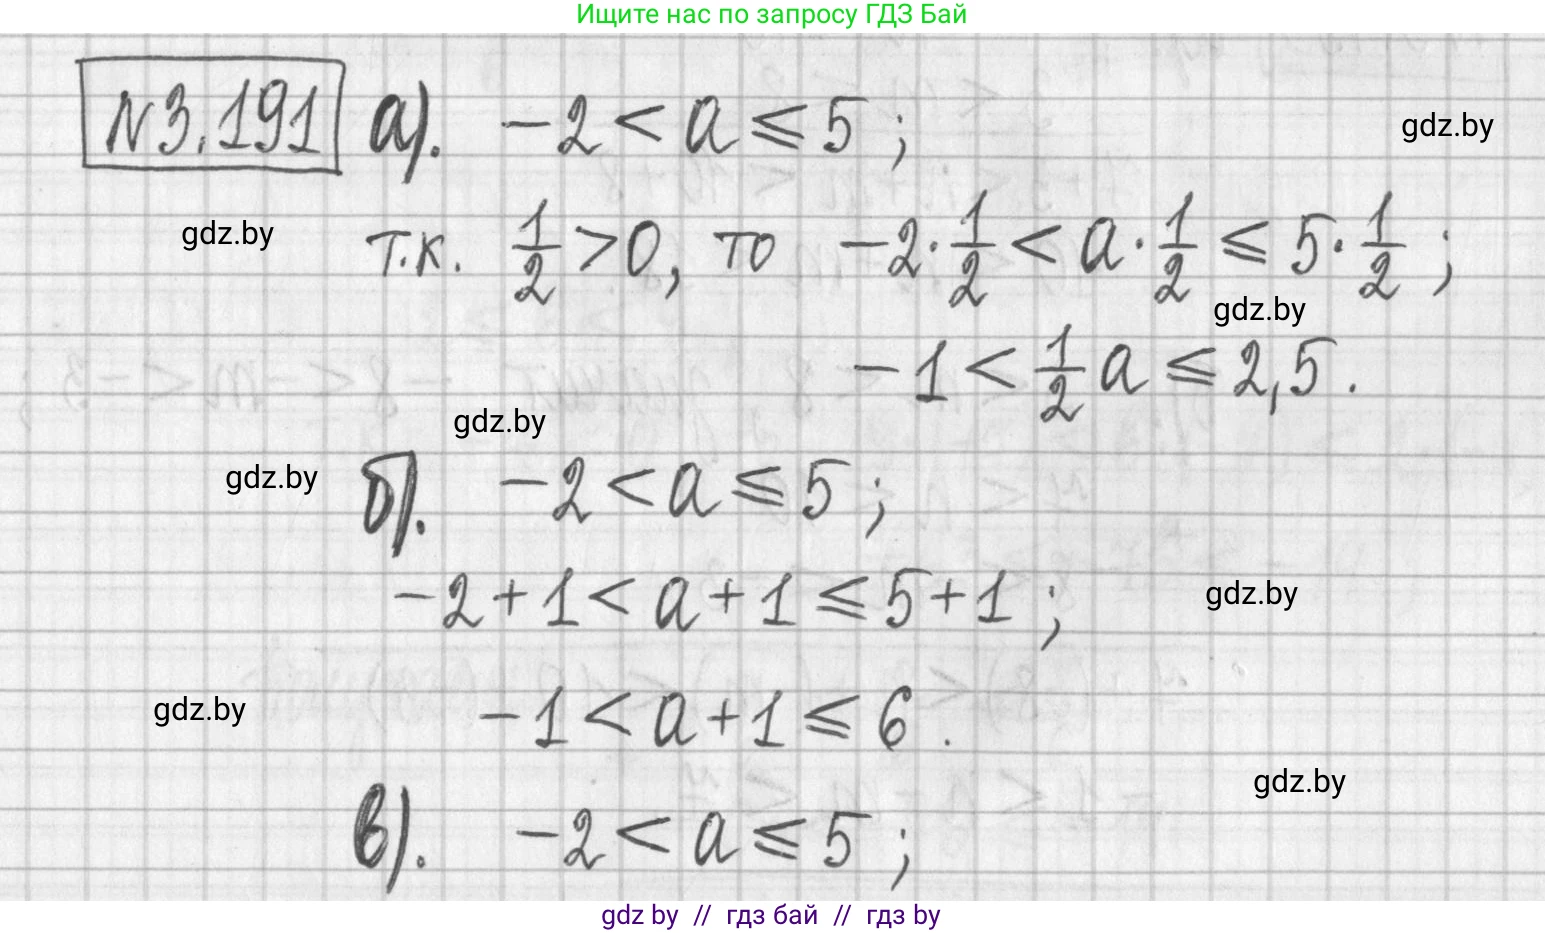 Ищите нас по запросу ГДЗ Бай
№3.191 а). -2 < a ⩽ 5 ;
gdz.by
gdz.by
т.к. 1/2 > 0, то -2·1/2 < a·1/2 ⩽ 5·1/2 ;
gdz.by
-1 < 1/2 a ⩽ 2,5.
gdz.by
gdz.by
б). -2 < a ⩽ 5 ;
-2+1 < a+1 ⩽ 5+1 ;
gdz.by
gdz.by
-1 < a+1 ⩽ 6.
gdz.by
в). -2 < a ⩽ 5 ;
gdz by // гдз бай // гдз by